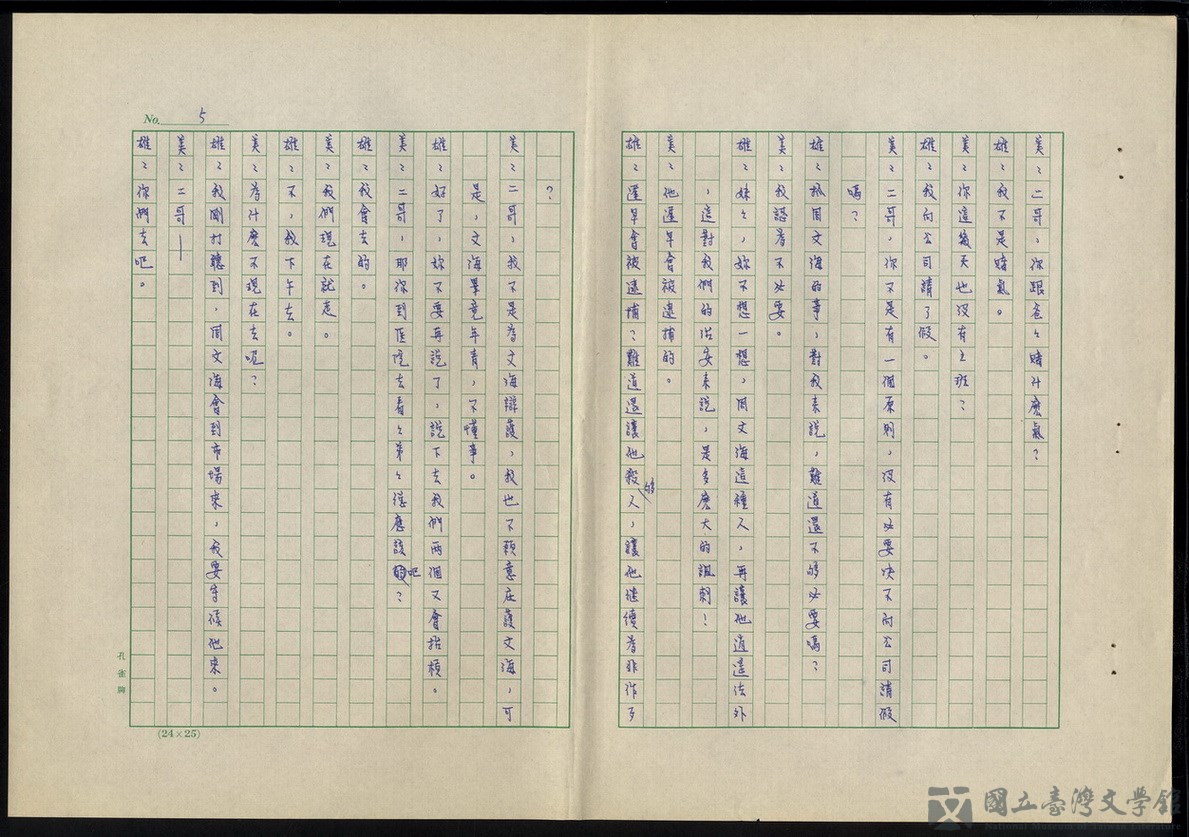 No. 5
美：二哥，你跟爸々賭什麼氣？
雄：我不是賭氣。
美：你這幾天也沒有上班？
雄：我向公司請了假。
美：二哥，你不是有一個原則，沒有必要决不向公司請假
嗎？
雄：抓周文海的事，對我來說，難道還不够必要嗎？
美：我認為不必要。
雄：妹々，妳不想一想，周文海這種人，再讓他逍遙法外
，這對我們的治安來說，是多麼大的諷刺！
美：他遲早會被逮捕的。
雄：遲早會被逮捕？難道還讓他殺够人，讓他繼續為非作歹
？
美：二哥，我不是為文海辯護，我也不願意庇護文海，可
是，文海畢竟年青，不懂事。
雄：好了，妳不要再說了，說下去我們兩個又會抬槓。
美：二哥，那你到医院去看々弟々總應該吧？
雄：我會去的。
美：我們現在就走。
雄：不，我下午去。
美：為什麼不現在去呢？
雄：我剛打聽到，周文海會到市場來，我要守候他來。
美：二哥—
雄：你們去吧。
孔雀牌
(24×25)
國立臺灣文學館
National Museum of Taiwan Literature